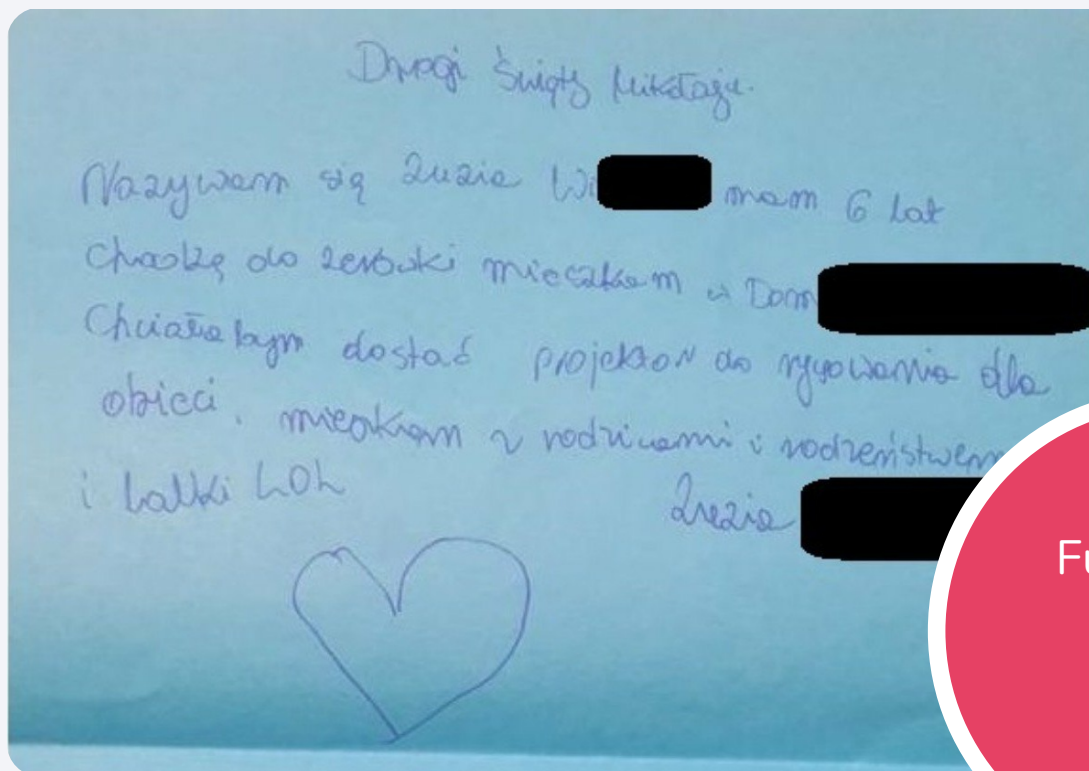 Drogi Święty Mikołaju.
Nazywam się Zuzia Wi mam 6 lat
Chodzę do zerówki mieszkam w Dom
Chciałabym dostać projektor do rysowania dla
dzieci. mieszkam z rodzicami i rodzeństwem
i lalki LOL
Zuzia
Fu